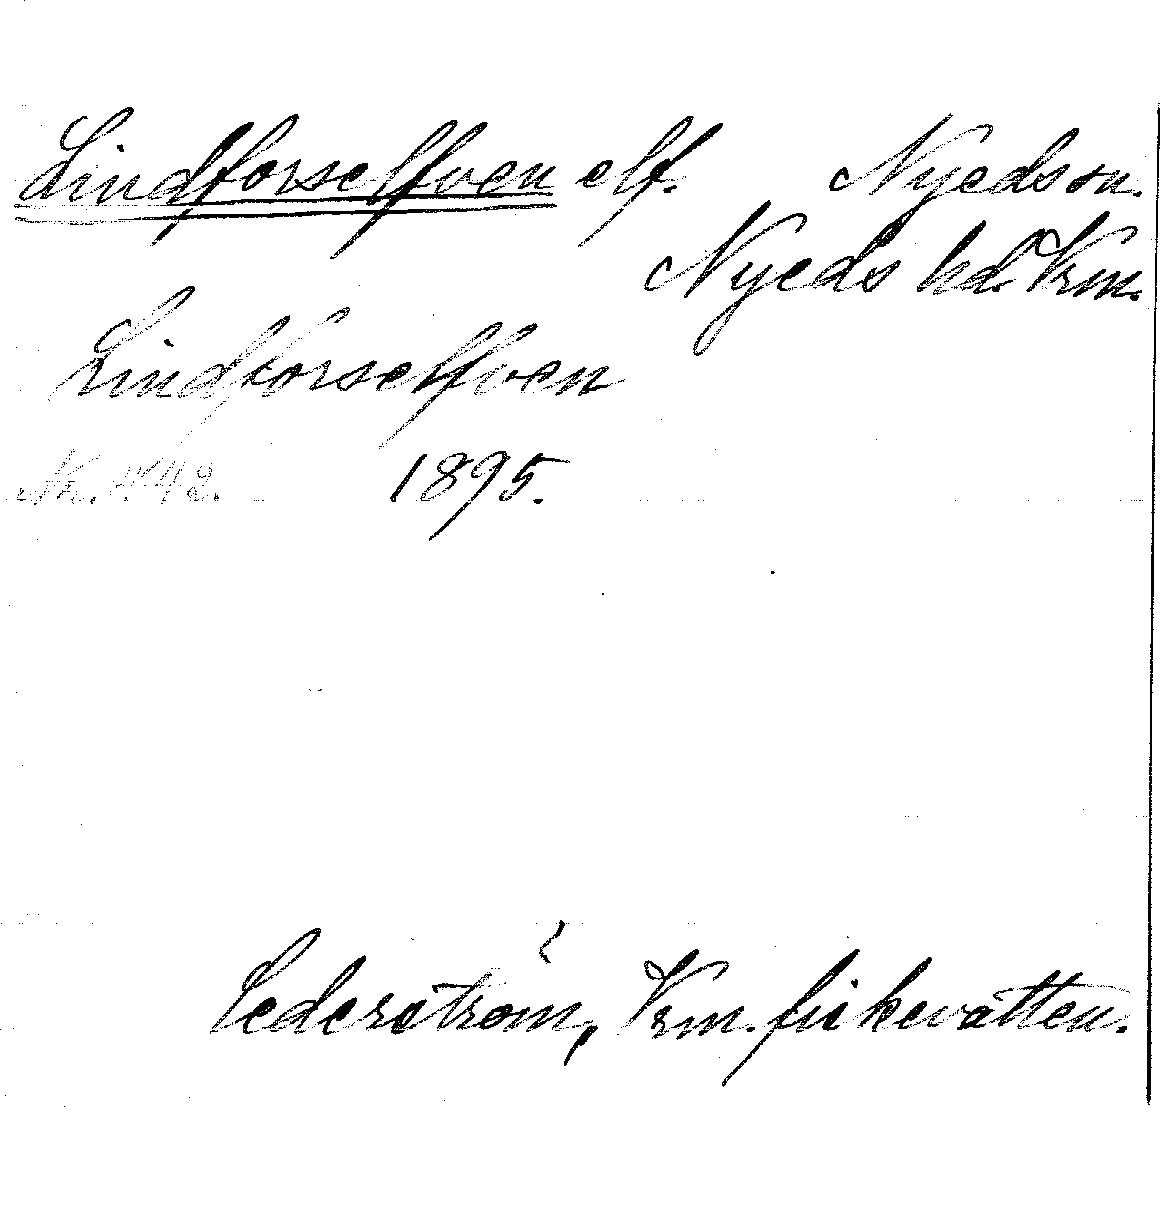 Lindforselfven elf. Nyeds sn.
Nyeds hd. Vrm.
Lindforselfven
1895.
Cederström, Vrm. fiskevatten.